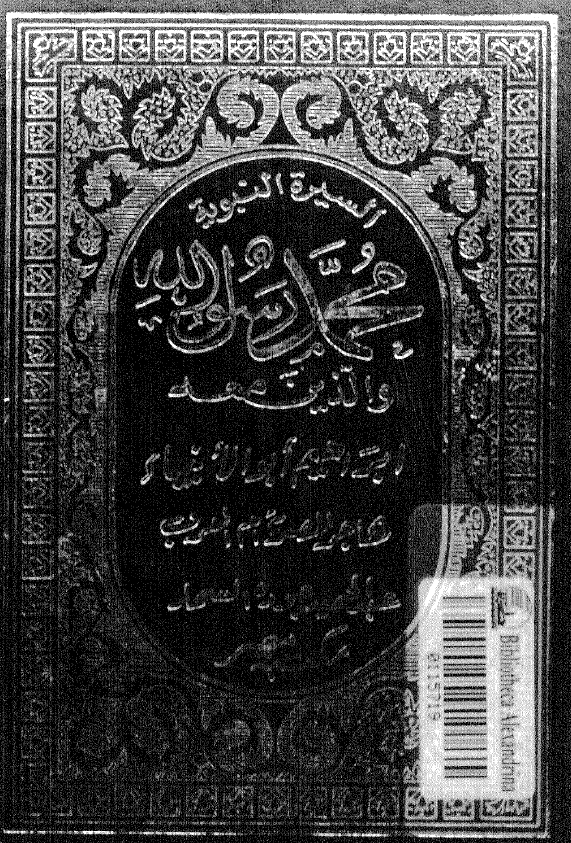 السيرة النبوية
محمد رسول الله
والذين معه
ابراهيم أبو الأنبياء
هاجر المصرية أم العرب
عبد الحميد جوده السحار
Bibliotheca Alexandrina
0115719